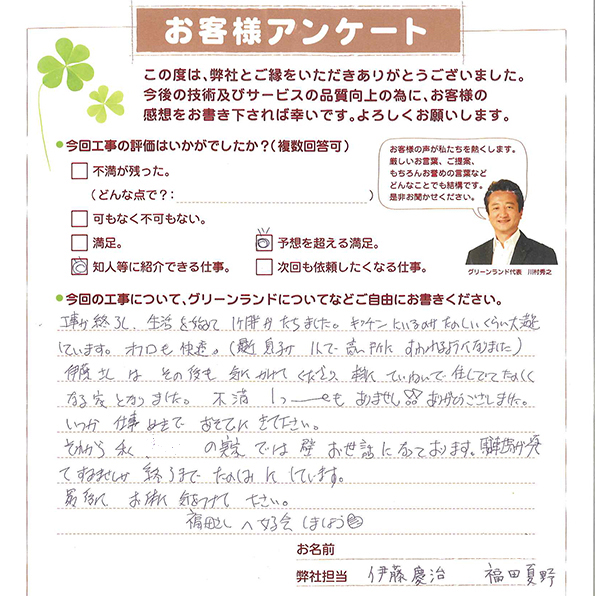 お客様アンケート
この度は、弊社とご縁をいただきありがとうございました。
今後の技術及びサービスの品質向上の為に、お客様の
感想をお書き下されば幸いです。よろしくお願いします。
●今回工事の評価はいかがでしたか?(複数回答可)
不満が残った。
(どんな点で?: )
可もなく不可もない。
満足。
予想を超える満足。
知人等に紹介できる仕事。
次回も依頼したくなる仕事。
お客様の声が私たちを熱くします。
厳しいお言葉、ご提案、
もちろんお誉めの言葉など
どんなことでも結構です。
是非お聞かせください。
グリーンランド代表 川村秀之
●今回の工事について、グリーンランドについてなどご自由にお書きください。
工事が終了し、生活を始めて1ヶ月がたちました。キッチンにいるのがたのしいくらい大満足
しています。オフロも快適。(最近 息子が 1人で
伊藤さんは その後も 気にかけて くださり、 ていねいで 住んでて たのしく
なる家となりました。 不満 1つ も ありません ありがとうございました。
いつか 仕事ぬきで あそびに きて下さい。
それから 私 の実家では 壁 お世話になっております。
終るまで たのしみにしています。
最後に お体に 気をつけて 下さい。
福田さん 女子会 しましょう
お名前
弊社担当 伊藤慶治 福田夏野